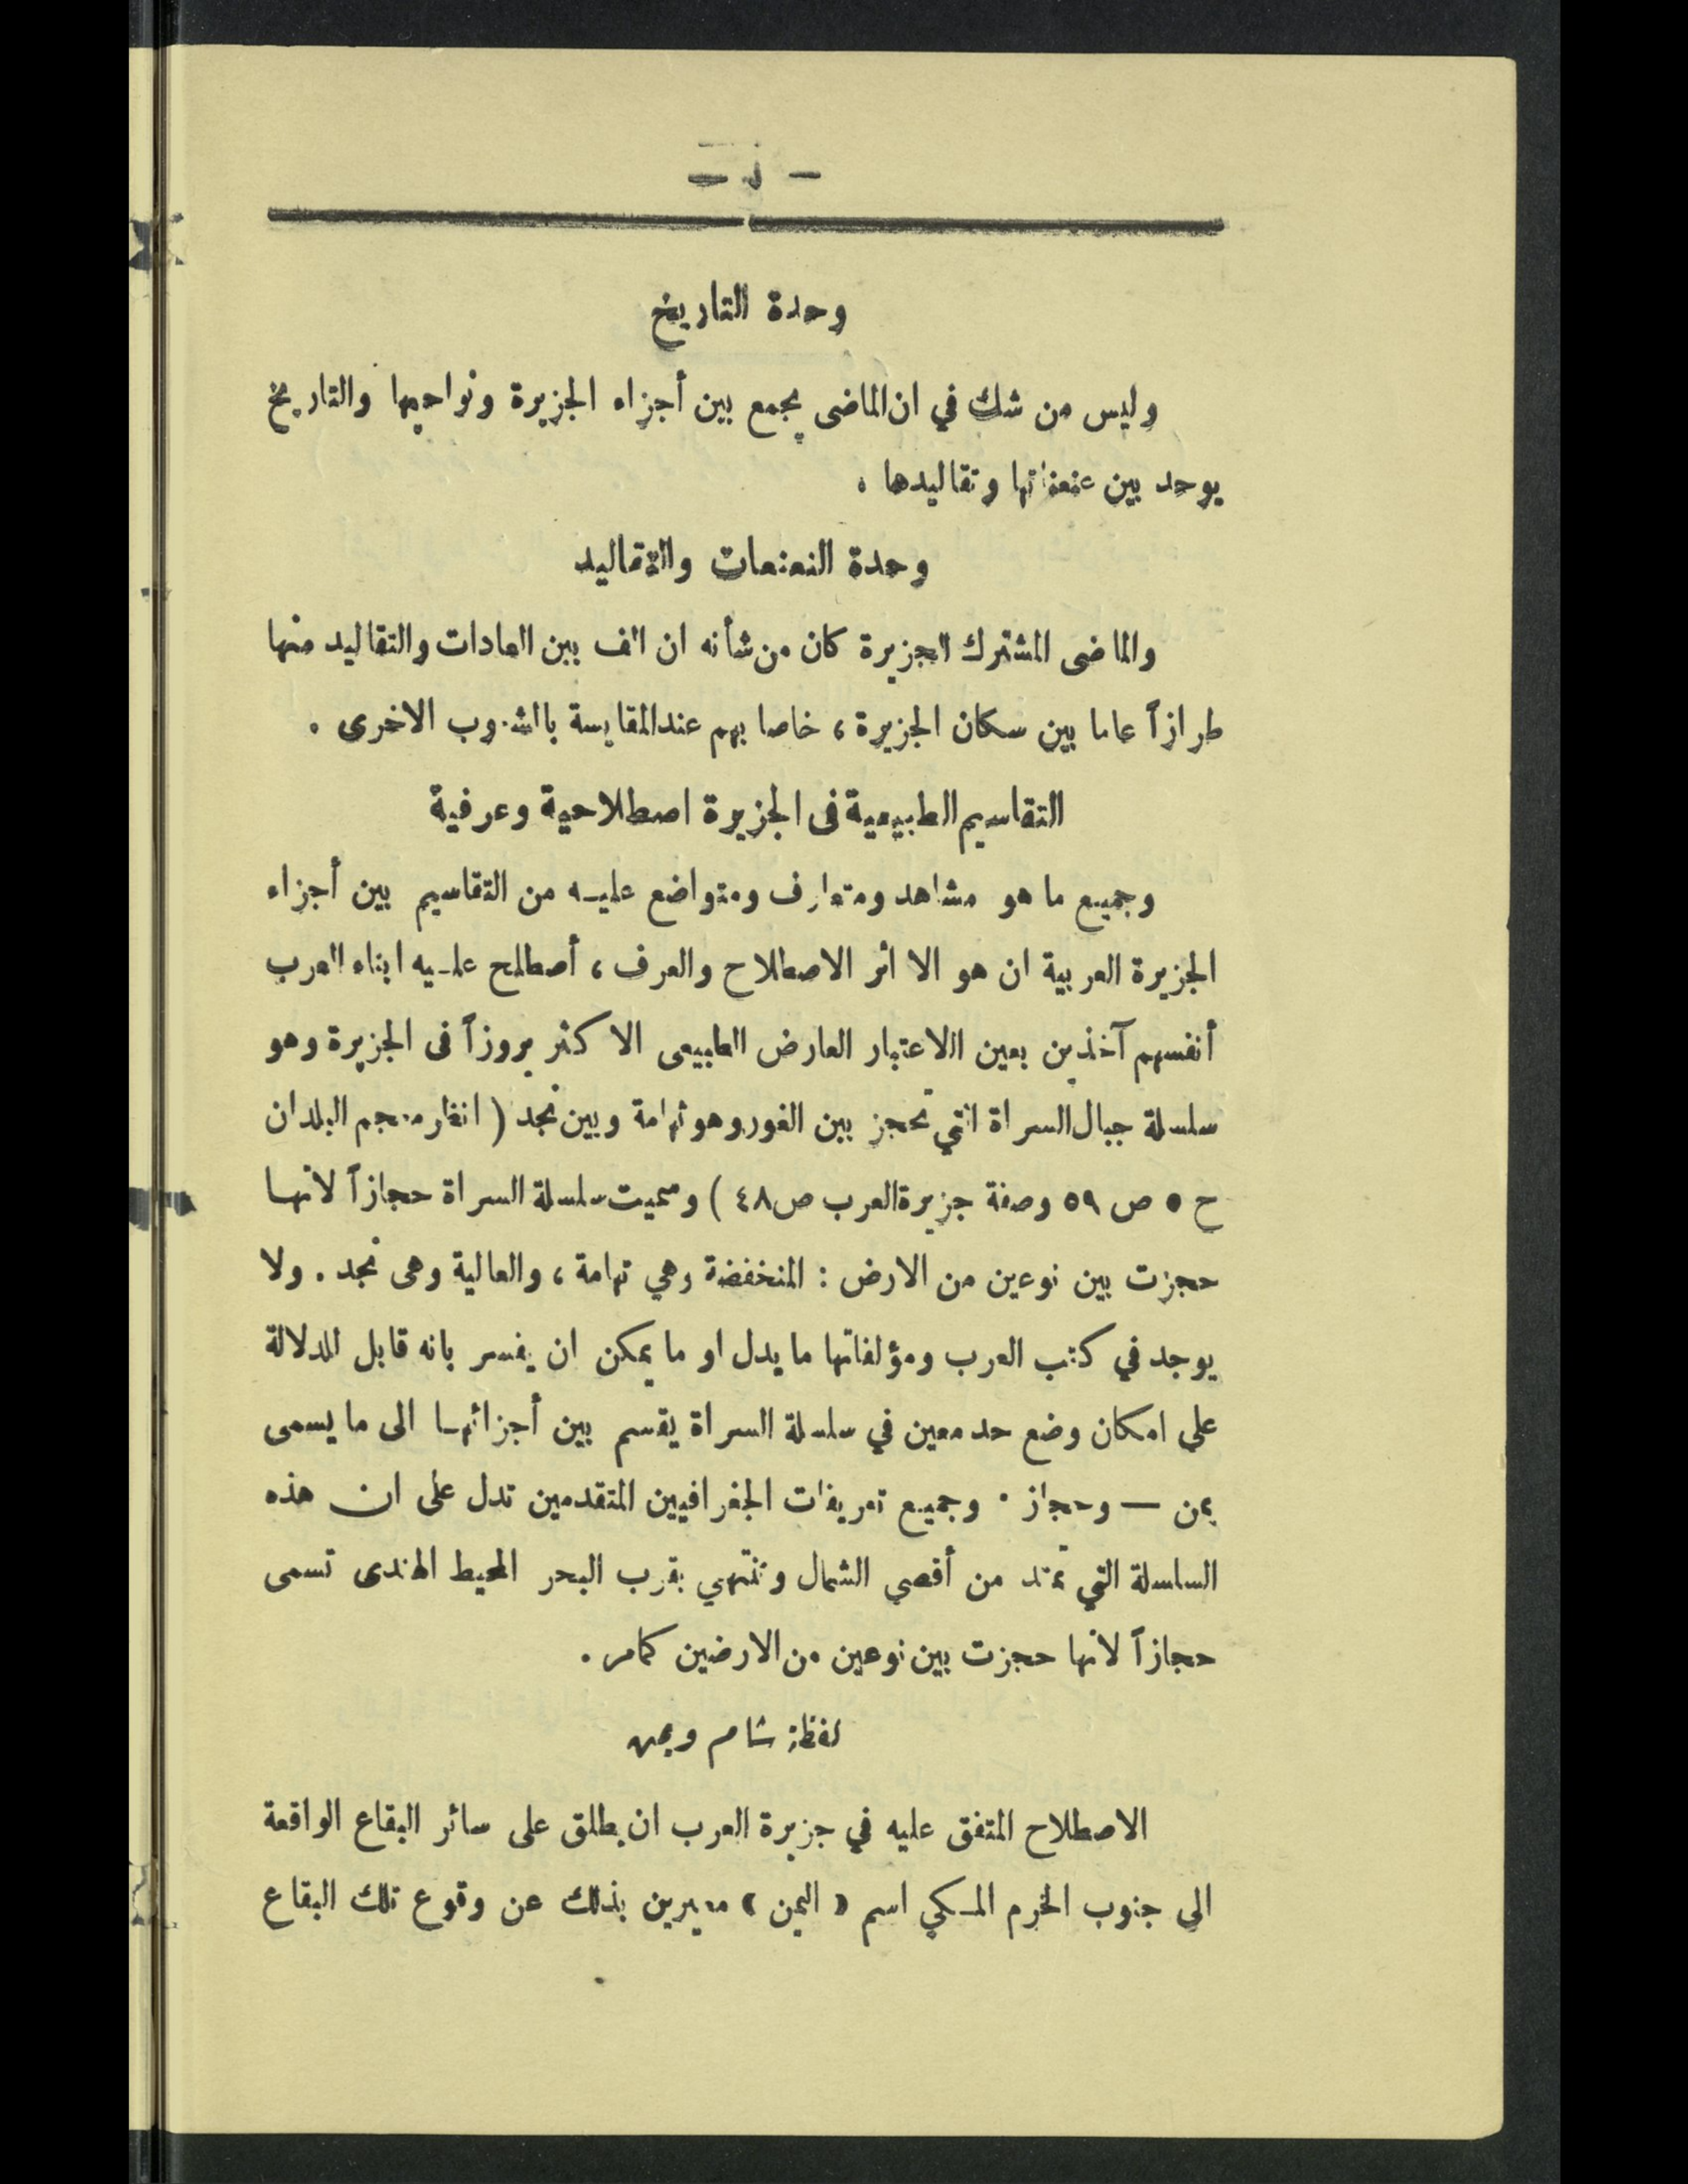 وحدة التاريخ
وليس من شك في ان الماضى يجمع بين أجزاء الجزيرة ونواحيها والتاريخ
يوحد بين عنعناتها وتقاليدها .
وحدة النعنعات والتقاليد
والماضى المشترك للجزيرة كان من شأنه ان الف بين العادات والتقاليد منها
طرازاً عاما بين سكان الجزيرة ، خاصا بهم عند المقايسة بالشعوب الاخرى .
التقاسيم الطبيعية فى الجزيرة اصطلاحية وعرفية
وجميع ما هو مشاهد ومتعارف ومتواضع عليه من التقاسيم بين أجزاء
الجزيرة العربية ان هو الا أثر الاصطلاح والعرف ، أصطلح عليه ابناء العرب
أنفسهم آخذين بعين الاعتبار العارض الطبيعى الاكثر بروزاً فى الجزيرة وهو
سلسلة جبال السراة التي تحجز بين الغور وهو تهامة وبين نجد ( انظر معجم البلدان
ح ٥ ص ٥٩ وصفة جزيرة العرب ص ٤٨ ) وسميت سلسلة السراة حجازاً لانها
حجزت بين نوعين من الارض : المنخفضة وهي تهامة ، والعالية وهى نجد . ولا
يوجد في كتب العرب ومؤلفاتها ما يدل او ما يمكن ان يفسر بانه قابل للدلالة
علي امكان وضع حد معين في سلسلة السراة يقسم بين أجزائها الى ما يسمى
يمن — وحجاز . وجميع تعريفات الجغرافيين المتقدمين تدل على ان هذه
السلسلة التي تمتد من أقصي الشمال وتنتهي بقرب البحر المحيط الهندى تسمى
حجازاً لانها حجزت بين نوعين من الارضين كمامر .
لفظة شام ويمن
الاصطلاح المتفق عليه في جزيرة العرب ان يطلق على سائر البقاع الواقعة
الي جنوب الحرم المكي اسم « اليمن » معبرين بذلك عن وقوع تلك البقاع